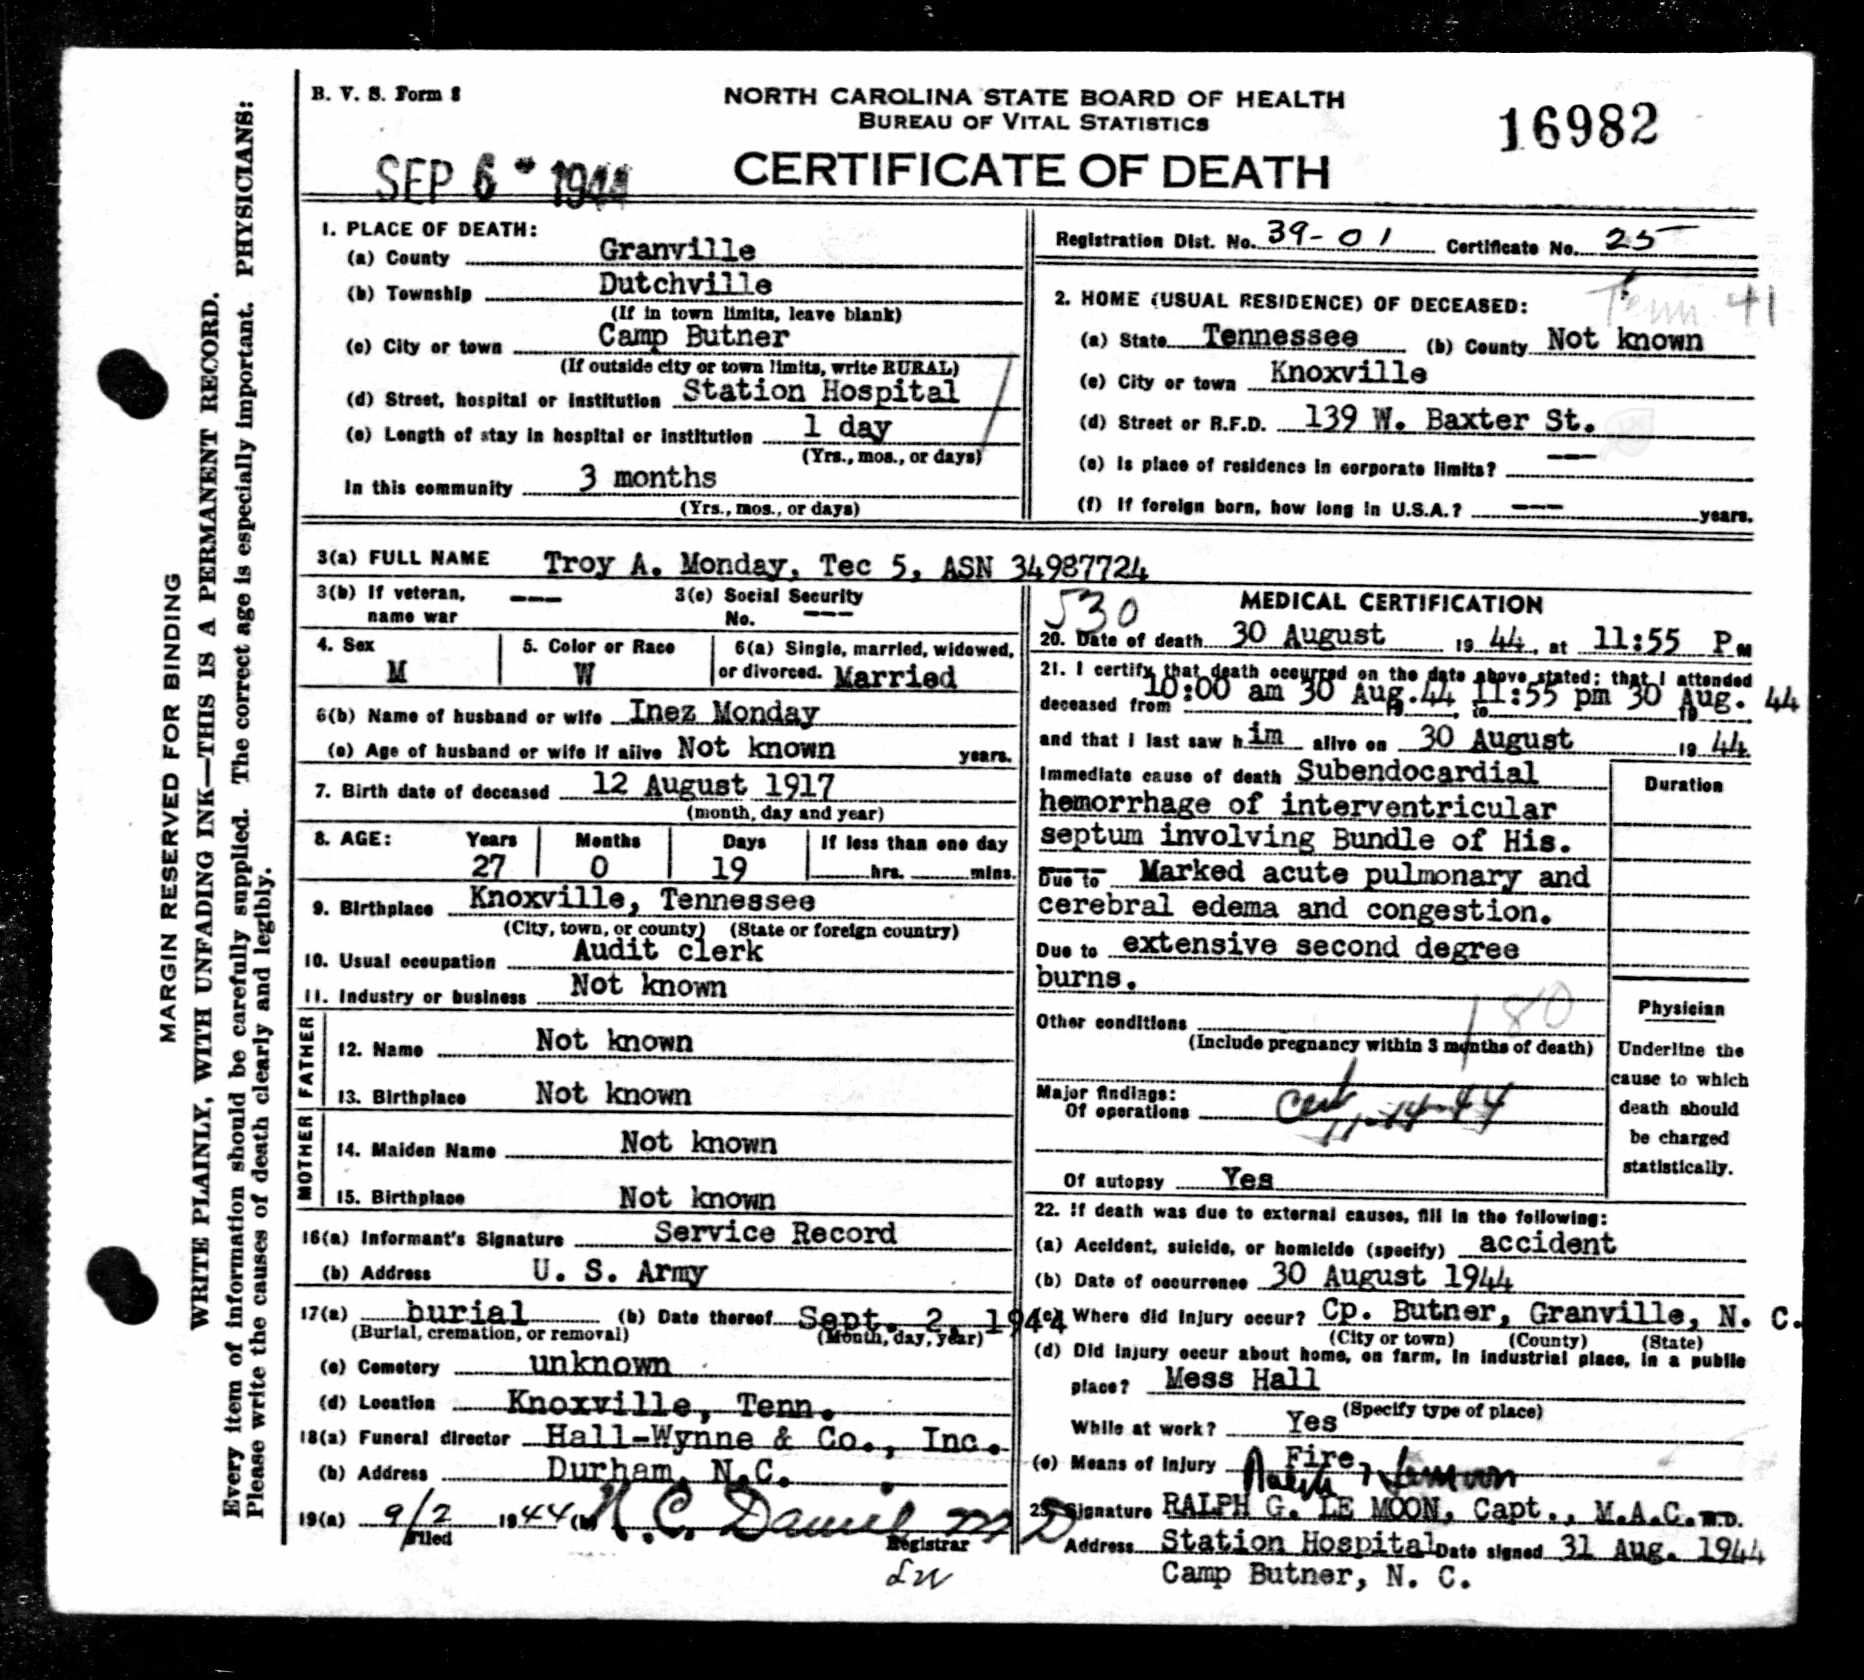 B. V. S. Form 8
NORTH CAROLINA STATE BOARD OF HEALTH
BUREAU OF VITAL STATISTICS
16982
SEP 6 - 1944
CERTIFICATE OF DEATH
1. PLACE OF DEATH:
(a) County Granville
(b) Township Dutchville
(If in town limits, leave blank)
(c) City or town Camp Butner
(If outside city or town limits, write RURAL)
(d) Street, hospital or institution Station Hospital
(e) Length of stay in hospital or institution 1 day
(Yrs., mos., or days)
In this community 3 months
(Yrs., mos., or days)
Registration Dist. No. 39-01 Certificate No. 25
Tenn 41
2. HOME (USUAL RESIDENCE) OF DECEASED:
(a) State Tennessee (b) County Not known
(c) City or town Knoxville
(d) Street or R.F.D. 139 W. Baxter St.
(e) Is place of residence in corporate limits? ---
(f) If foreign born, how long in U.S.A.? --- years.
3(a) FULL NAME Troy A. Monday, Tec 5, ASN 34987724
3(b) If veteran, name war ---
3(c) Social Security No. ---
4. Sex M
5. Color or Race W
6(a) Single, married, widowed, or divorced. Married
6(b) Name of husband or wife Inez Monday
(c) Age of husband or wife if alive Not known years.
7. Birth date of deceased 12 August 1917
(month, day and year)
8. AGE: Years Months Days If less than one day
27 0 19 hrs. mins.
9. Birthplace Knoxville, Tennessee
(City, town, or county) (State or foreign country)
10. Usual occupation Audit clerk
11. Industry or business Not known
FATHER
12. Name Not known
13. Birthplace Not known
MOTHER
14. Maiden Name Not known
15. Birthplace Not known
16(a) Informant's Signature Service Record
(b) Address U. S. Army
17(a) burial (b) Date thereof Sept. 2, 1944
(Burial, cremation, or removal) (Month, day, year)
(c) Cemetery unknown
(d) Location Knoxville, Tenn.
18(a) Funeral director Hall-Wynne & Co., Inc.
(b) Address Durham, N.C.
19(a) 9/2 1944 (b) Daniel MD
Filed Registrar
530
MEDICAL CERTIFICATION
20. Date of death 30 August 1944, at 11:55 P M
21. I certify that death occurred on the date above stated; that I attended
deceased from 10:00 am 30 Aug. 19 44, to 11:55 pm 30 Aug. 19 44
and that I last saw him alive on 30 August 19 44
Immediate cause of death Subendocardial
hemorrhage of interventricular
septum involving Bundle of His.
Due to Marked acute pulmonary and
cerebral edema and congestion.
Due to extensive second degree
burns.
Duration
180
Other conditions
(Include pregnancy within 3 months of death)
Major findings:
Of operations
11-14-44
Of autopsy Yes
Physician
Underline the
cause to which
death should
be charged
statistically.
22. If death was due to external causes, fill in the following:
(a) Accident, suicide, or homicide (specify) accident
(b) Date of occurrence 30 August 1944
(c) Where did injury occur? Cp. Butner, Granville, N. C.
(City or town) (County) (State)
(d) Did injury occur about home, on farm, in industrial place, in a public
place? Mess Hall
(Specify type of place)
While at work? Yes
(e) Means of injury Fire
23. Signature RALPH G. LE MOON, Capt., M.A.C. M.D.
Address Station Hospital Date signed 31 Aug. 1944
Camp Butner, N. C.
MARGIN RESERVED FOR BINDING
WRITE PLAINLY, WITH UNFADING INK—THIS IS A PERMANENT RECORD.
Every item of information should be carefully supplied. The correct age is especially important. PHYSICIANS:
Please write the causes of death clearly and legibly.